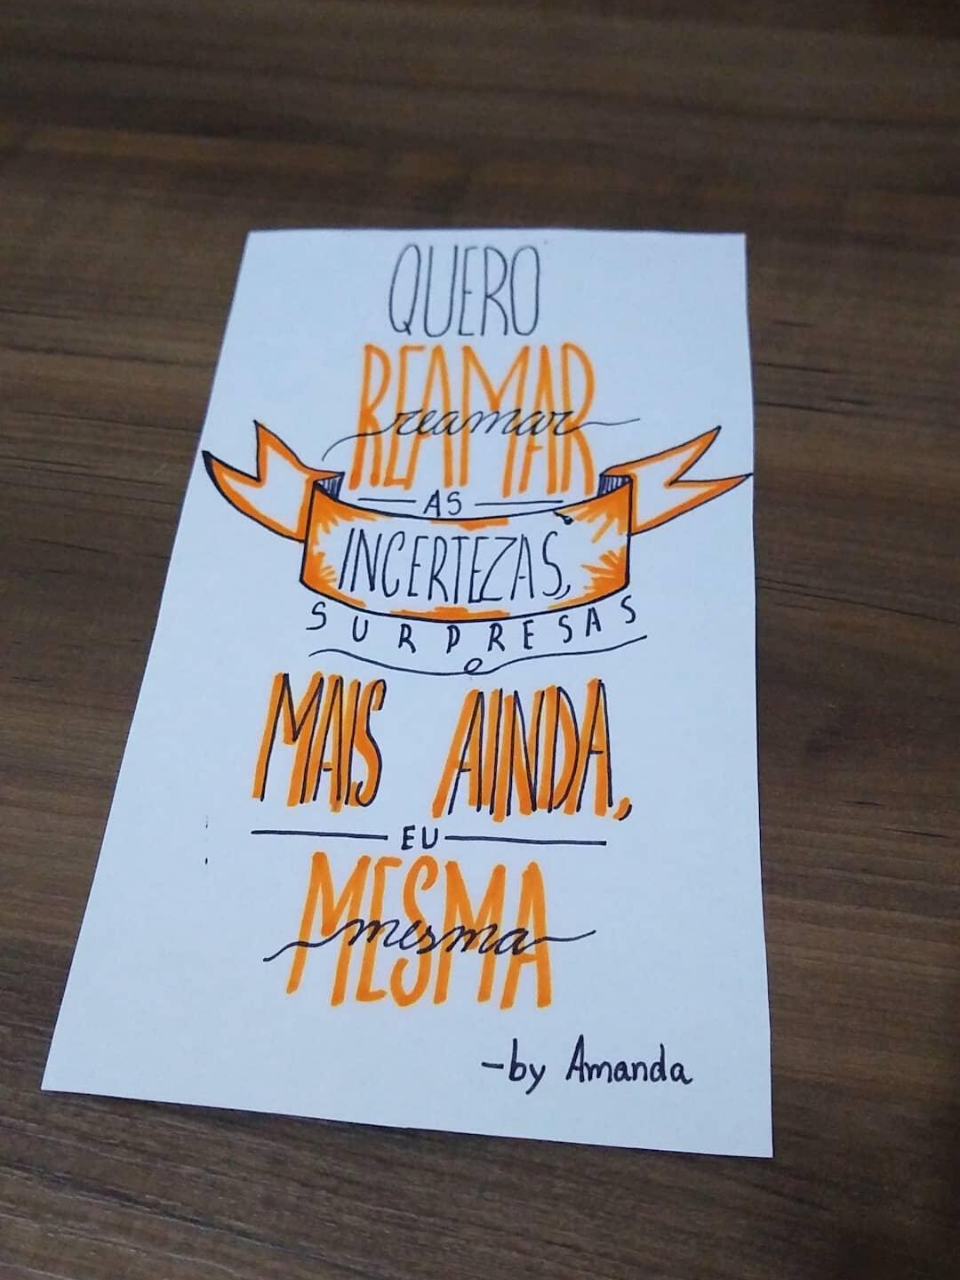 QUERO
REAMAR
reamar
AS
INCERTEZAS,
SURPRESAS
MAIS AINDA,
EU
MESMA
mesma
-by Amanda